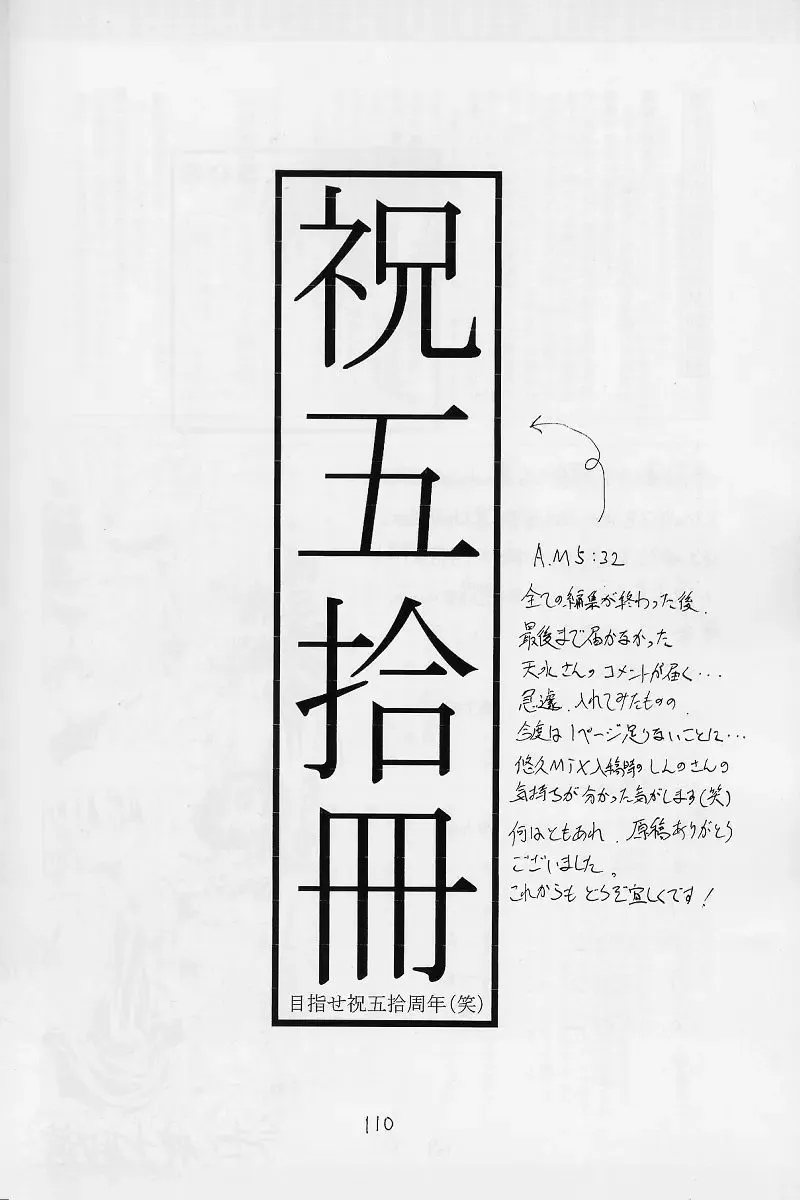 祝五拾冊
目指せ祝五拾周年(笑)
A.M5:32
全ての編集が終わった後、
最後まで届かなかった
天水さんのコメントが届く・・・
急遽、入れてみたものの、
今度は1ページ足りないことに・・・
悠久MIX入稿時のしんのさんの
気持ちが分かった気がします(笑)
何はともあれ、原稿ありがとう
ございました。
これからもどうぞ宜しくです!
110